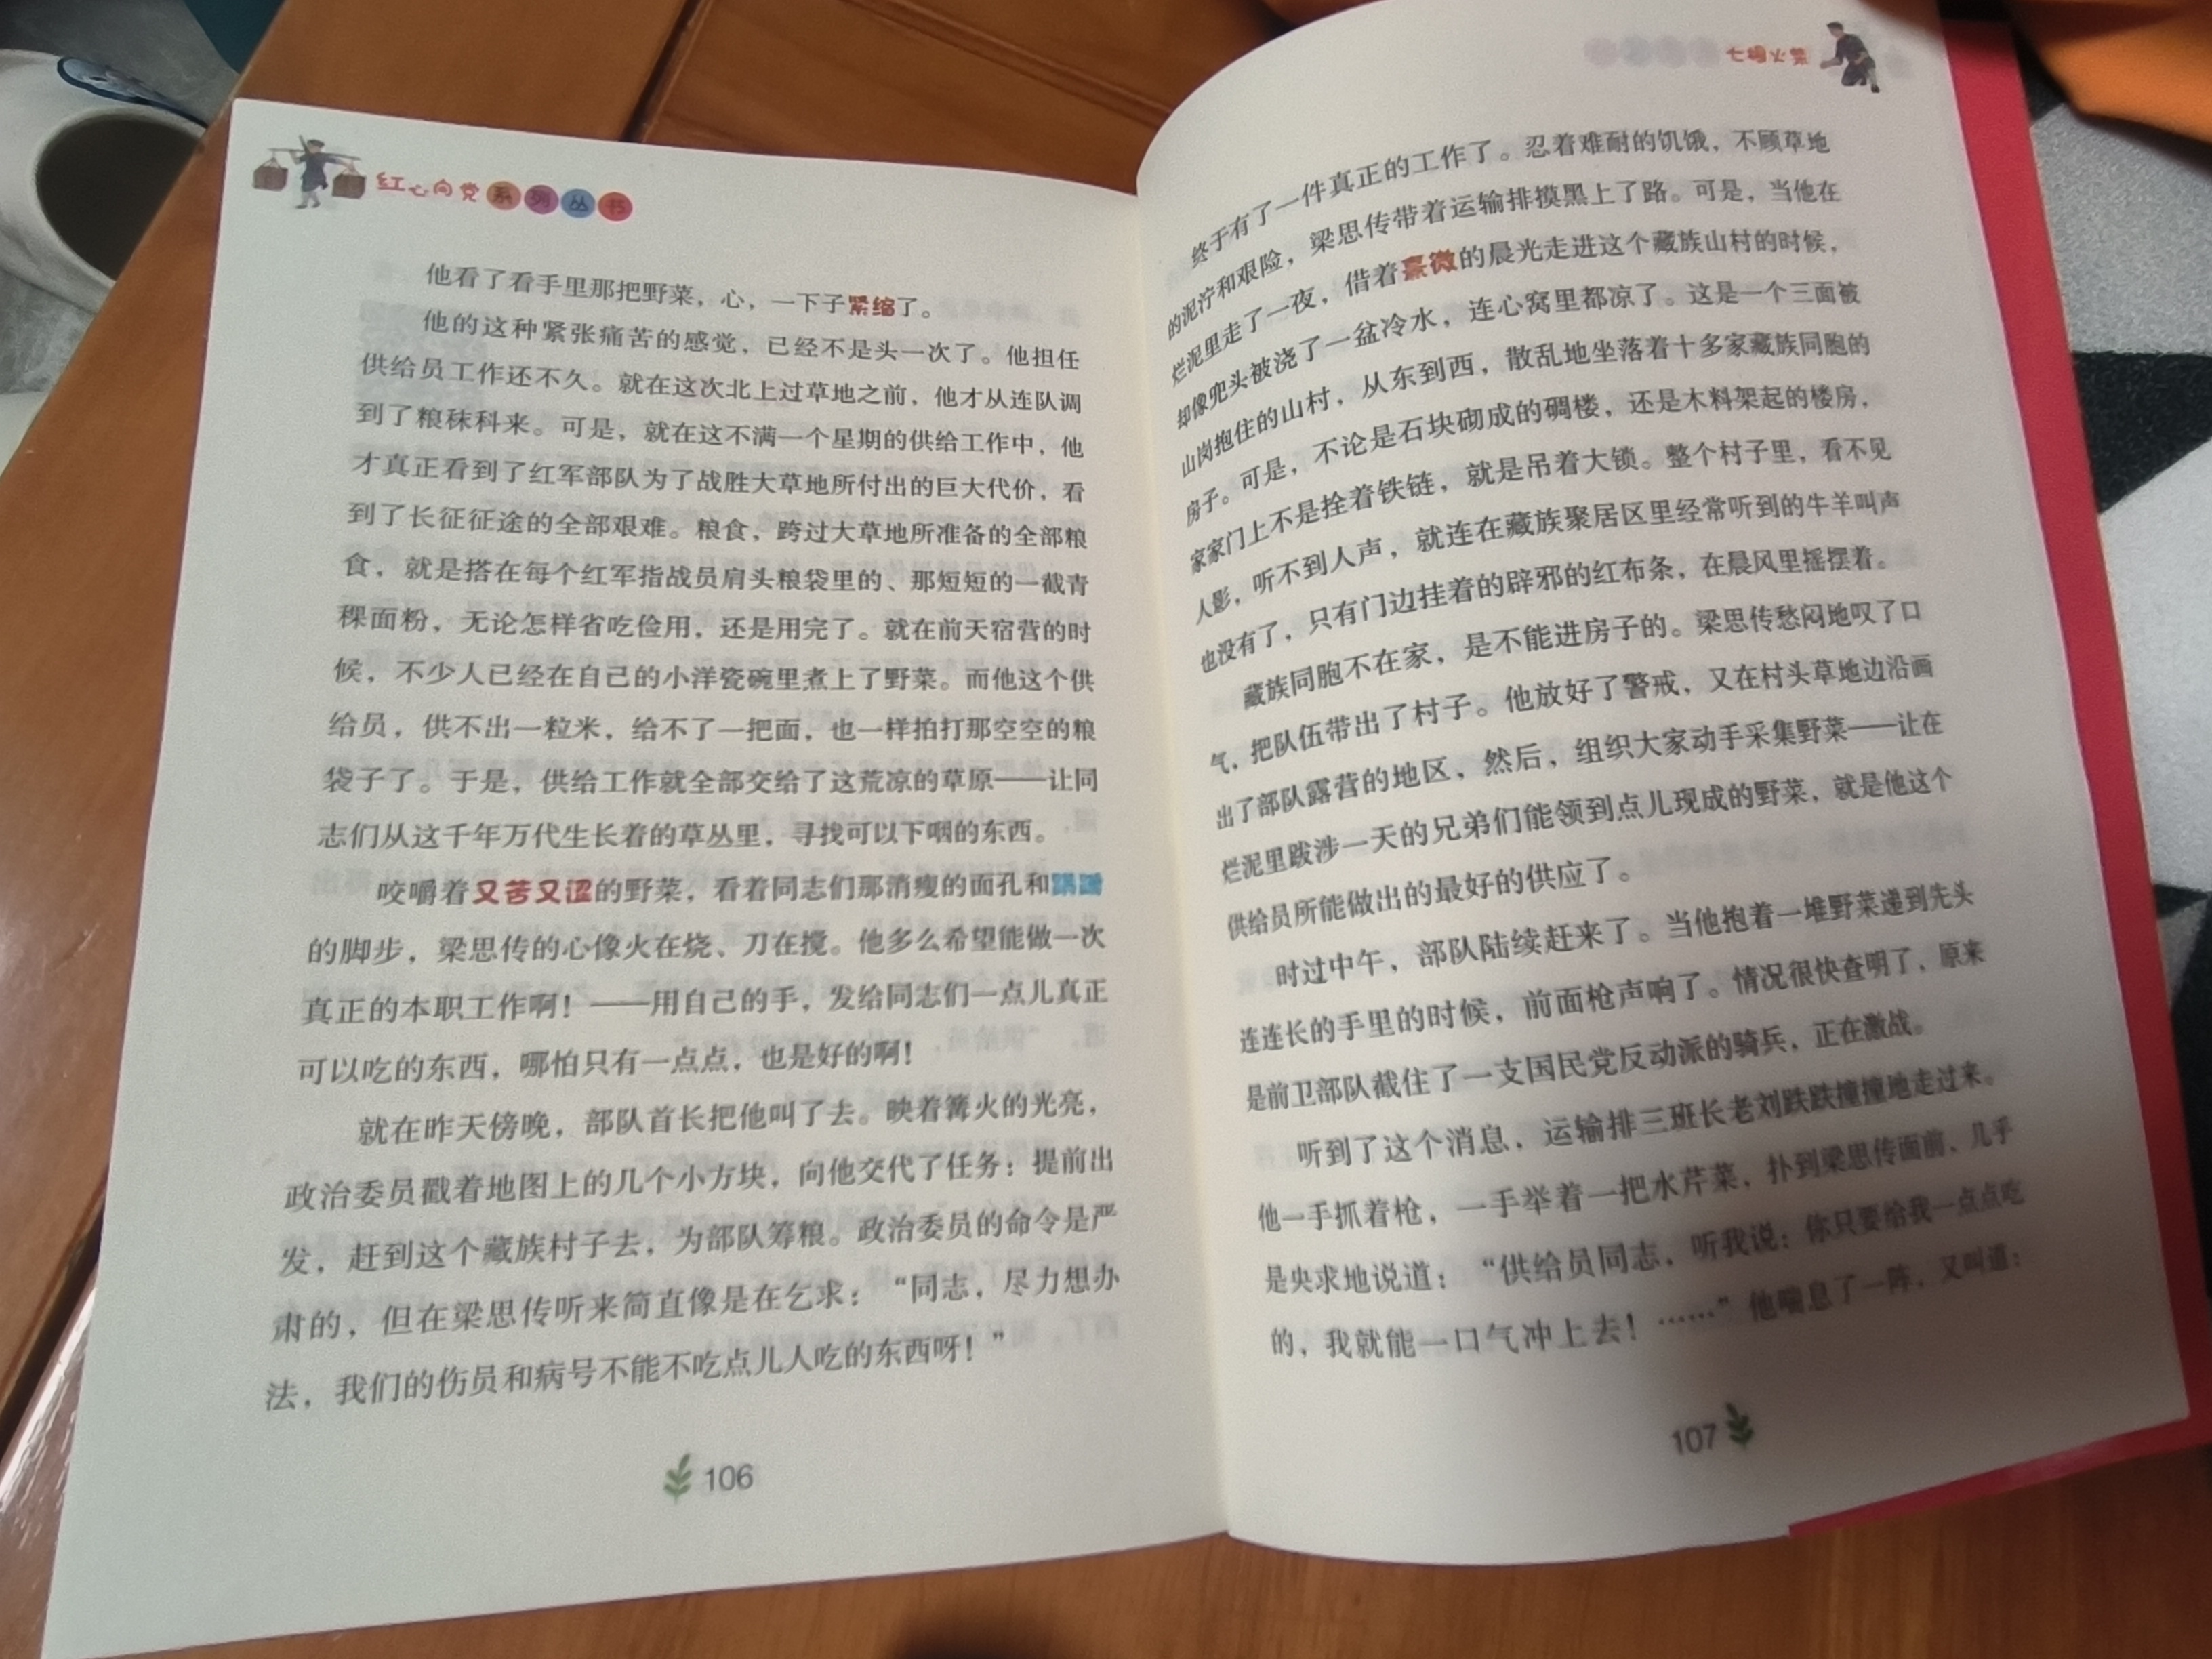 红心向党系列丛书
他看了看手里那把野菜，心，一下子紧缩了。
他的这种紧张痛苦的感觉，已经不是头一次了。他担任
供给员工作还不久。就在这次北上过草地之前，他才从连队调
到了粮秣科来。可是，就在这不满一个星期的供给工作中，他
才真正看到了红军部队为了战胜大草地所付出的巨大代价，看
到了长征征途的全部艰难。粮食，跨过大草地所准备的全部粮
食，就是搭在每个红军指战员肩头粮袋里的、那短短的一截青
稞面粉，无论怎样省吃俭用，还是用完了。就在前天宿营的时
候，不少人已经在自己的小洋瓷碗里煮上了野菜。而他这个供
给员，供不出一粒米，给不了一把面，也一样拍打那空空的粮
袋子了。于是，供给工作就全部交给了这荒凉的草原——让同
志们从这千年万代生长着的草丛里，寻找可以下咽的东西。
咬嚼着又苦又涩的野菜，看着同志们那消瘦的面孔和
的脚步，梁思传的心像火在烧、刀在搅。他多么希望能做一次
真正的本职工作啊！——用自己的手，发给同志们一点儿真正
可以吃的东西，哪怕只有一点点，也是好的啊！
就在昨天傍晚，部队首长把他叫了去。映着篝火的光亮，
政治委员戳着地图上的几个小方块，向他交代了任务：提前出
发，赶到这个藏族村子去，为部队筹粮。政治委员的命令是严
肃的，但在梁思传听来简直像是在乞求：“同志，尽力想办
法，我们的伤员和病号不能不吃点儿人吃的东西呀！”
106
七根火柴
终于有了一件真正的工作了。忍着难耐的饥饿，不顾草地
的泥泞和艰险，梁思传带着运输排摸黑上了路。可是，当他在
烂泥里走了一夜，借着熹微的晨光走进这个藏族山村的时候，
却像兜头被浇了一盆冷水，连心窝里都凉了。这是一个三面被
山岗抱住的山村，从东到西，散乱地坐落着十多家藏族同胞的
房子。可是，不论是石块砌成的碉楼，还是木料架起的楼房，
家家门上不是拴着铁链，就是吊着大锁。整个村子里，看不见
人影，听不到人声，就连在藏族聚居区里经常听到的牛羊叫声
也没有了，只有门边挂着的辟邪的红布条，在晨风里摇摆着。
藏族同胞不在家，是不能进房子的。梁思传愁闷地叹了口
气，把队伍带出了村子。他放好了警戒，又在村头草地边沿画
出了部队露营的地区，然后，组织大家动手采集野菜——让在
烂泥里跋涉一天的兄弟们能领到点儿现成的野菜，就是他这个
供给员所能做出的最好的供应了。
时过中午，部队陆续赶来了。当他抱着一堆野菜递到先头
连连长的手里的时候，前面枪声响了。情况很快查明了，原来
是前卫部队截住了一支国民党反动派的骑兵，正在激战。
听到了这个消息，运输排三班长老刘跌跌撞撞地走过来。
他一手抓着枪，一手举着一把水芹菜，扑到梁思传面前，几乎
是央求地说道：“供给员同志，听我说：你只要给我一点点吃
的，我就能一口气冲上去！……”他喘息了一阵，又叫道：
107